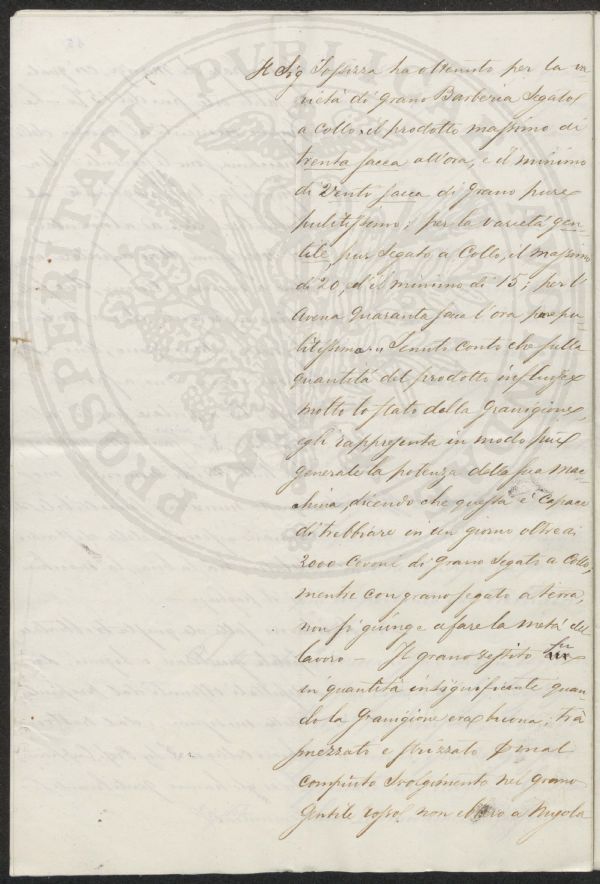 Il Sig Tossizza ha ottenuto per la va
rietà di grano Barberia Segato
a collo, il prodotto massimo di
trenta sacca all'ora, e il minimo
di Venti sacca di grano pure
pulitissimo; per la varietà gen-
tile, pur segato a Collo, il massimo
di 20, ed il minimo di 15; per l'
Avena Quaranta sacca l'ora pu-
litissima. Tenuto conto che sulla
quantità del prodotto influisce
molto lo stato della Granigione,
egli rappresenta in modo più
generale la potenza della sua mac-
china, dicendo che questa è capace
di trebbiare in un giorno oltre ai
2000 Covoni di grano Segato a Collo,
mentre con grano segato a terra,
non si giunge a fare la metà del
lavoro — Il grano fu
in quantità insignificante quan-
do la Granigione era buona; tra
mezzato e strizzato
compiuto Svolgimento nel grano
Gentile rosso, non ebbero a
PROSPERITATI PUBLICAE